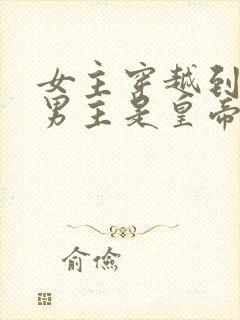 女主穿越到
男主是皇帝
俞俭